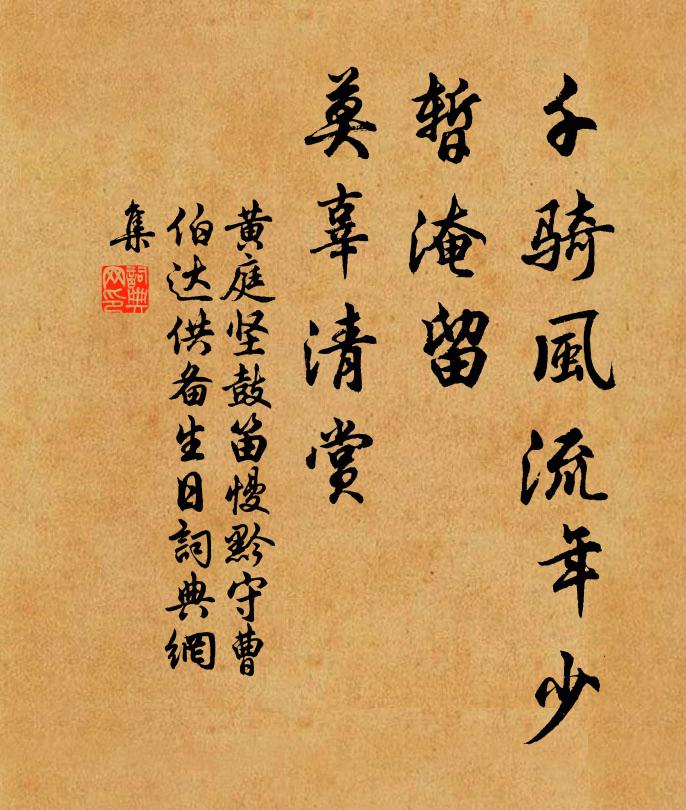 千骑風流年少
暫淹留
莫辜清賞
黄庭坚鼓笛慢黔守曹
伯达供备生日詞典網
集
詞典
网印